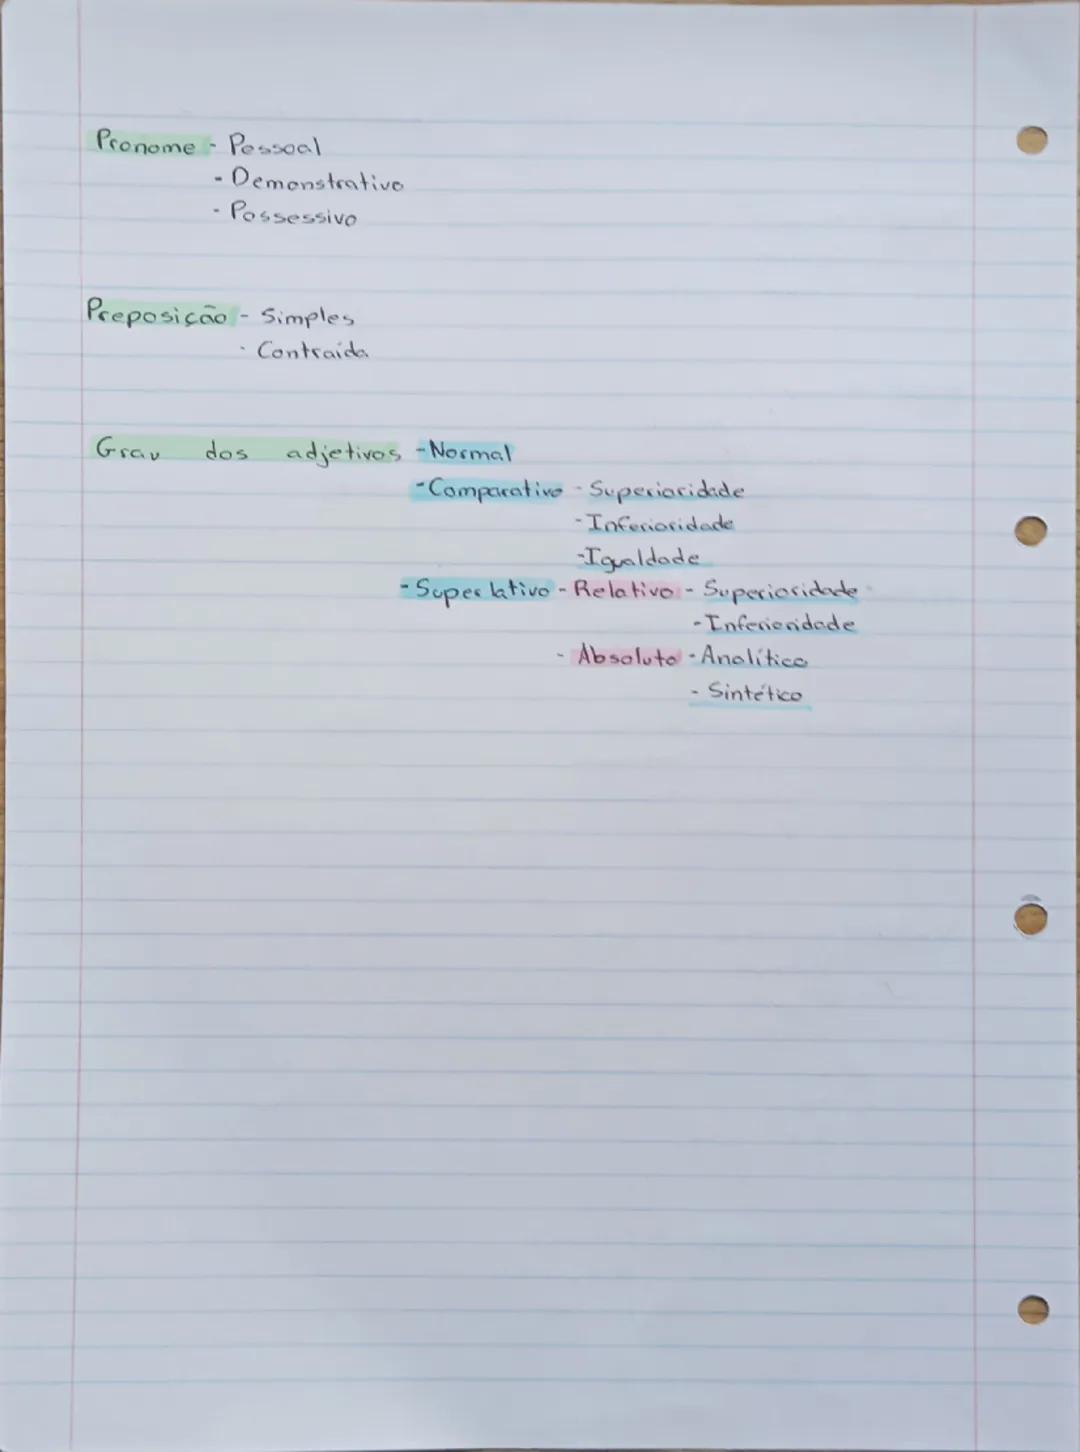 Pronome - Pessoal
- Demonstrativo
- Possessivo
Preposição - Simples
- Contraída
Grau dos adjetivos - Normal
- Comparativo - Superioridade
- Inferioridade
- Igualdade
- Superlativo - Relativo - Superioridade
- Inferioridade
- Absoluto - Analítico
- Sintético